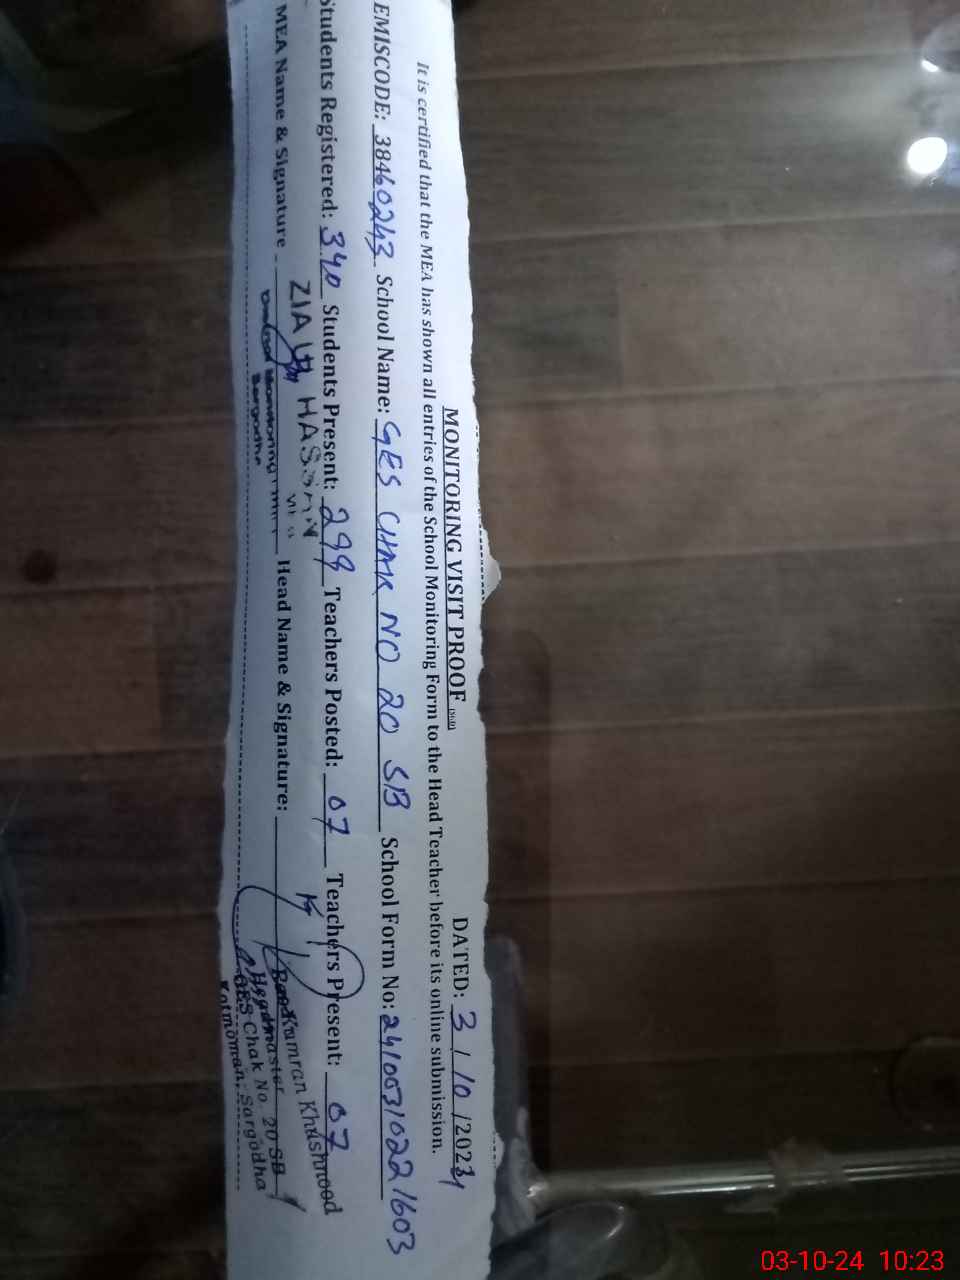 MONITORING VISIT PROOF DATED: 3/10/2024
It is certified that the MEA has shown all entries of the School Monitoring Form to the Head Teacher before its online submission.
EMISCODE: 38460243 School Name: GES CHAK NO 20 SB School Form No: 24100310221603
Students Registered: 340 Students Present: 299 Teachers Posted: 07 Teachers Present: 07
MEA Name & Signature Head Name & Signature:
ZIA UL HASSAN
Monitoring
Sargodha
Kamran Khushnood
Headmaster
GES Chak No. 20 SB
Kotmoman, Sargodha
03-10-24 10:23